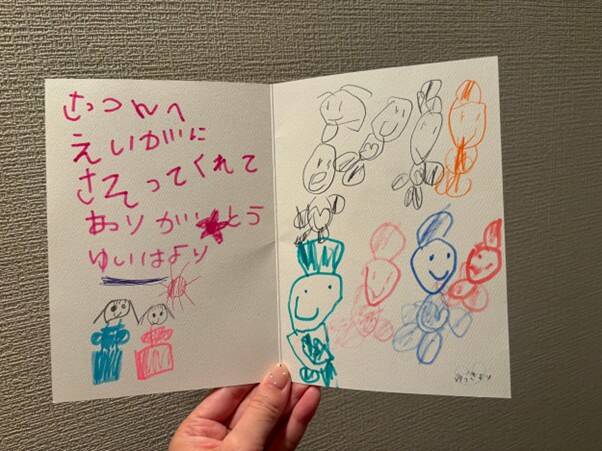 さっつんへ
えいがに
さそってくれて
ありがとう
ゆいはより
ゆうきより